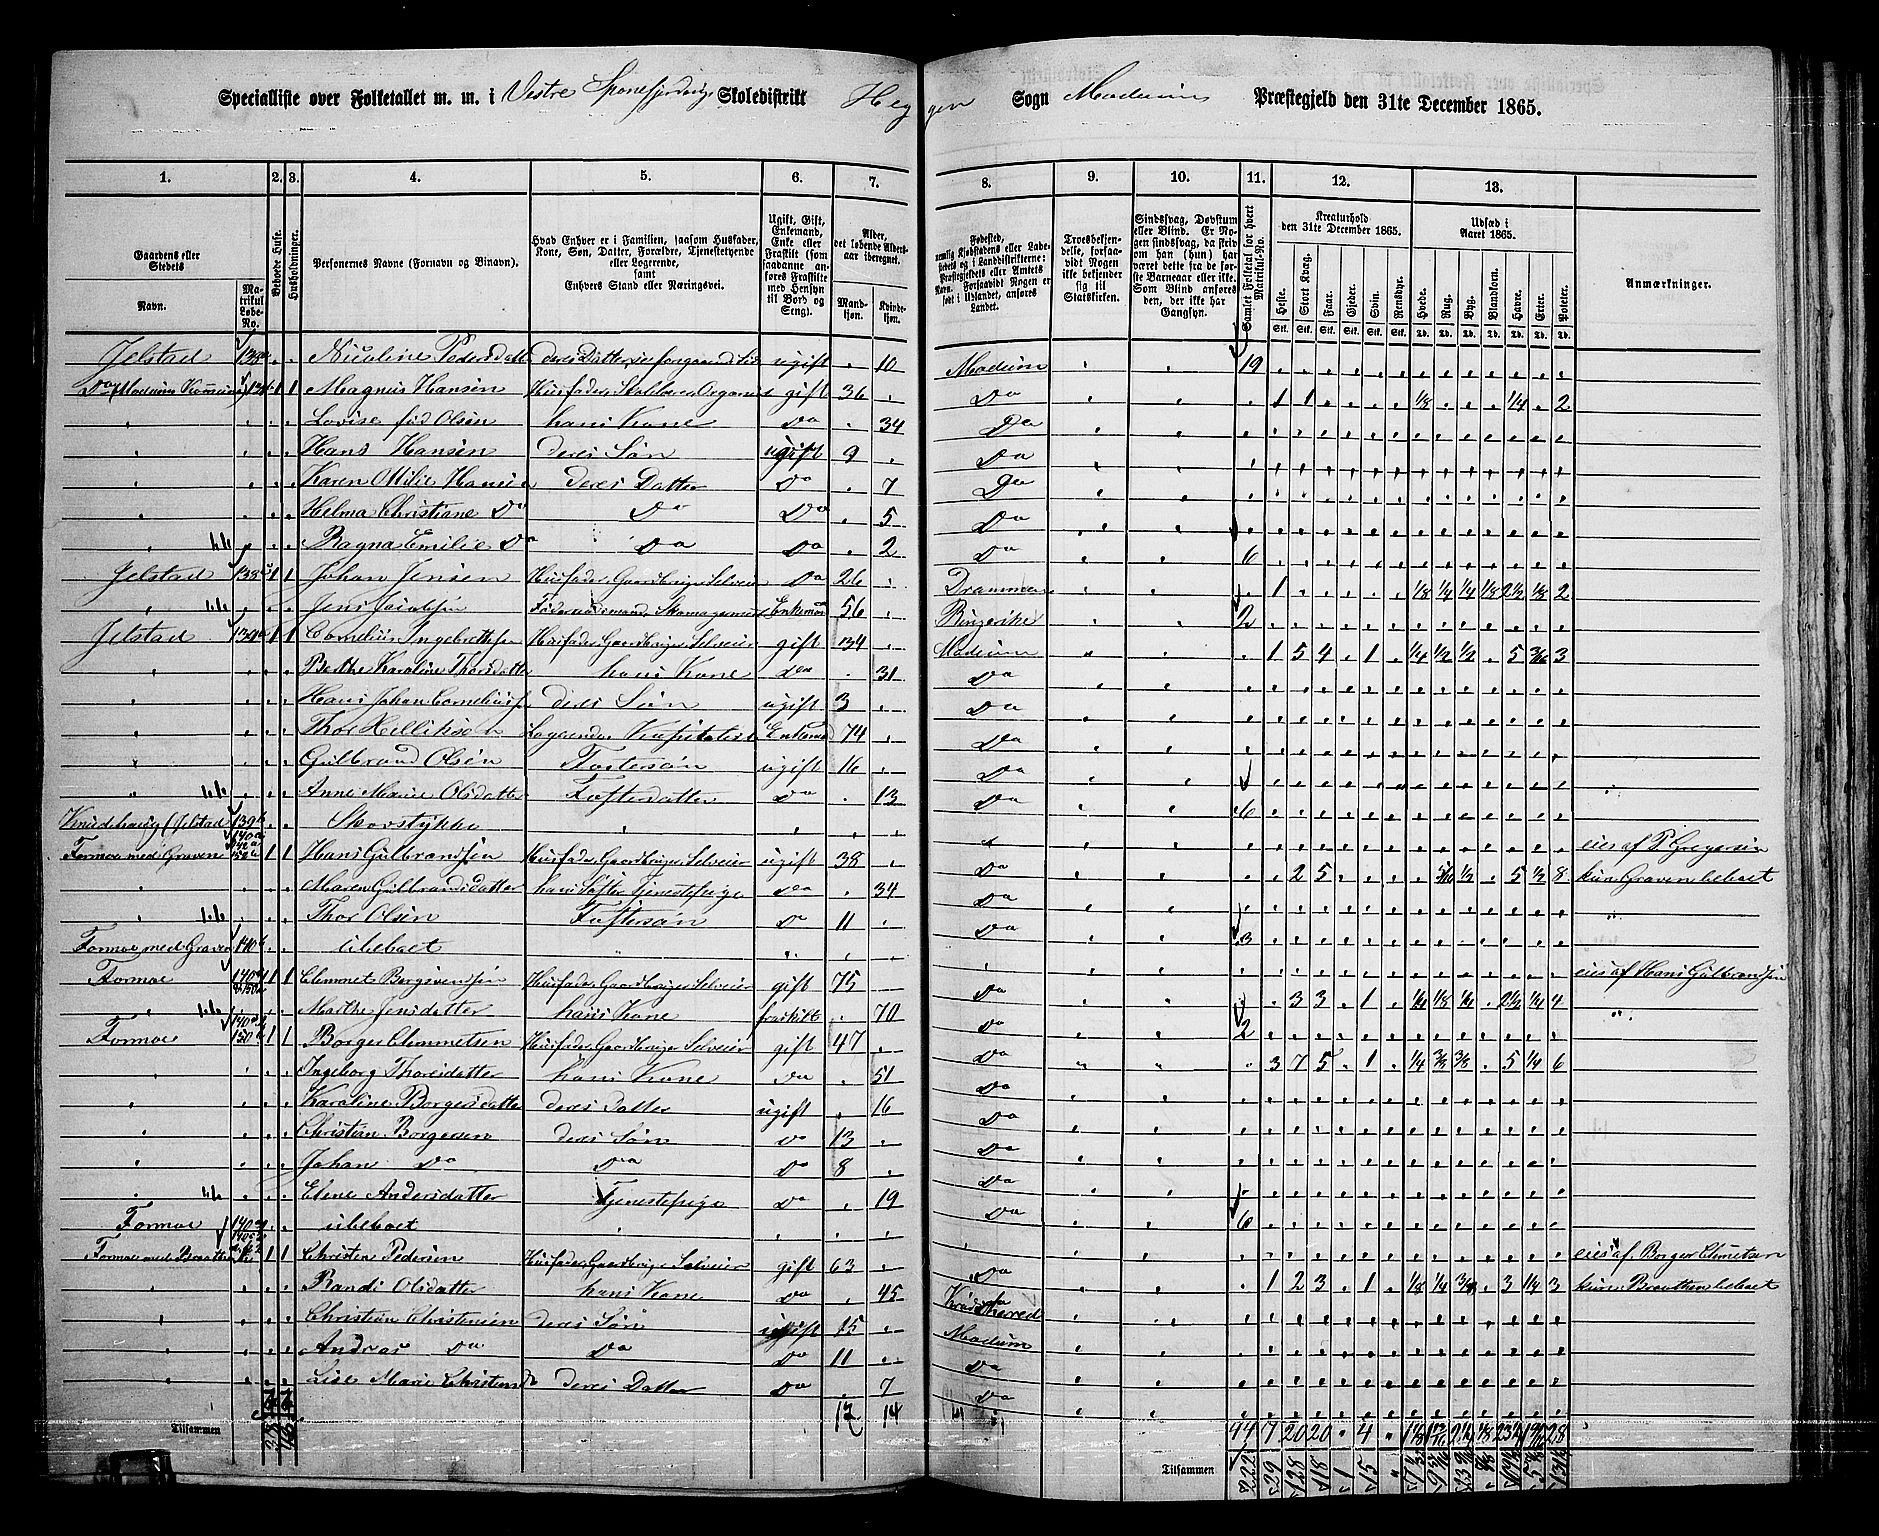 Specialliste over Folketallet m. m. i Vestre Skoledistrikt Heggen Sogn Modums Præstegjeld den 31te December 1865.
1. 2. 3. 4. 5. 6. 7. 8. 9. 10. 11. 12. 13.
Gaardens eller Stedets
Navn. Matrikul Løbe-No.
Beboede Huse.
Husholdninger.
Personernes Navne (Fornavn og Binavn).
Hvad Enhver er i Familien, saasom Husfader, Kone, Søn, Datter, Forældre, Tjenestetyende eller Logerende, samt Enhvers Stand eller Næringsvei.
Ugift, Gift, Enkemand, Enke eller Fraskilt (som saadanne anføres Fraskilte med Hensyn til Bord og Seng).
Alder, det løbende Aldersaar iberegnet.
Mandkjøn. Kvindekjøn.
Fødested,
Troesbekjendelse, forsaavidt Nogen ikke bekjender sig til Statskirken.
Sindssvag, Døvstum eller Blind. Er Nogen sindssvag, da skrives om han (hun) har været dette fra de første Barneaar eller ikke. Som Blind anføres den, der ikke har Gangsyn.
Samlet Folketal for hvert Matrikul-No.
Kreaturhold den 31te December 1865.
Heste. Stort Kvæg. Faar. Gjeder. Svin. Rensdyr.
Udsæd i Aaret 1865.
Hvede. Rug. Byg. Blandkorn. Havre. Erter. Poteter.
Anmærkninger.
Jelstad Nicoline Pedersdatter ugift 10 Modum 19
Magnus Hansen gift 36 Do 1 1 1/8 1/4 2
Lovise fød Olsen hans Kone Do 34 Do
Hans Hansen deres Søn ugift 9 Do
Karen Milie Hansen deres Datter Do 7 Do
Helma Christiane Do Do Do 5 Do
Ragna Emilie Do Do Do 2 Do 6
Jelstad 1 1 Johan Jensen Husfader, Gaardbruger Selveier Do 26 Drammen 1 1/8 1/4 1/4 1/8 2 1/2 1/8 2
Jens Jacobsen Enkemand 56 Ringerike 2
Jelstad 139a 1 1 Cornelius Ingebretsen Husfader, Gaardbruger Selveier gift 34 Modum 1 5 4 1 1/4 1/2 1/2 5 3/16 3
Berthe Karoline Thorsdatter hans Kone Do 31 Do
Hans Johan Corneliuss deres Søn ugift 3 Do
Thor Helliksen Logerende Kapitalist Enkemd 74 Do
Gulbrand Olsen Fostersøn ugift 16 Do
Anne Marie Olsdatter Fosterdatter Do 13 Do 6
(Jelstad 139b Skovstykke eies af P Gregersen
Formoe med Graven 1 1 Hans Gulbrandsen Husfader, Gaardbruger Selveier ugift 38 Do 2 5 5/16 1/2 5 1/2 8 kun Graven beboet
Maren Gulbrandsdatter hans Søster Tjenestepige Do 34 Do
Thor Olsen Fostersøn Do 11 Do 3
Formoe med Graven 140b ubeboet eies af Hans Gulbrandsen
Formoe 1 1 Clemmet Borgersen Husfader, Gaardbruger Selveier gift 75 Do 3 3 1 2 1/2 1/4 4
Marthe Jensdatter hans Kone fraskilt 70 Do 2
Formoe 1 1 Borger Clemmetsen Husfader, Gaardbruger Selveier gift 47 Do 3 7 5 1 1/4 3/8 3/8 5 1/4 6
Ingeborg Thorsdatter hans Kone Do 51 Do
Karoline Borgersdatter deres Datter ugift 16 Do
Christian Borgersen deres Søn Do 13 Do
Johan Do Do Do 8 Do
Elene Andersdatter Tjenestepige Do 19 Do 6
Formoe ubeboet eies af Borger Clemetsen
Formoe med Braatten 1 1 Christen Pedersen Husfader, Gaardbruger Selveier gift 63 Do 1 2 3 1 1/8 1/4 3 1/4 3 kun Braatten beboet
Randi Olsdatter hans Kone Do 45 Krødsherred
Christian Christensen deres Søn ugift 15 Modum
Andreas Do Do Do 11 Do
Lise Marie Christensd deres Datter Do 7 Do
Tilsammen 17 14 44 7 20 20 4 28
Tilsammen 222 29 128 118 1 15